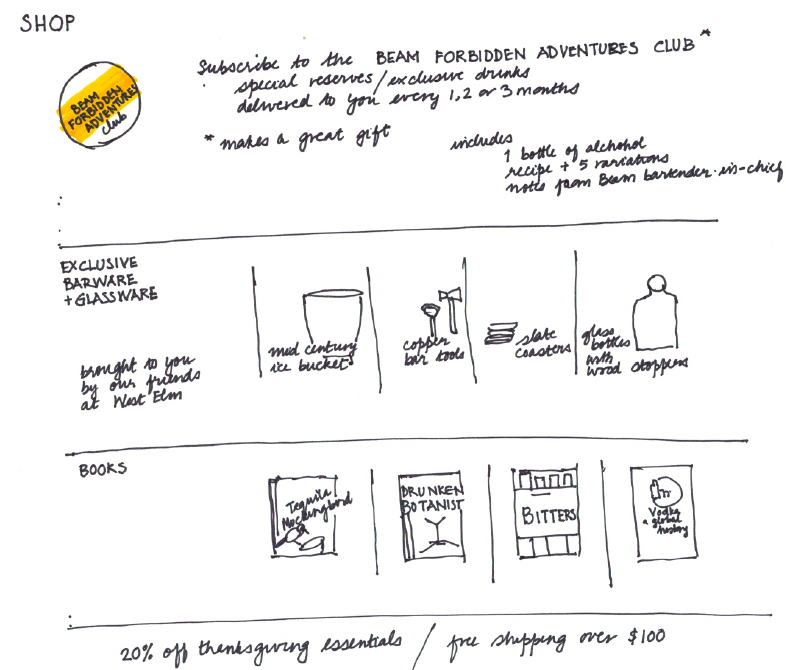 SHOP
BEAM
FORBIDDEN
ADVENTURES
Club
Subscribe to the BEAM FORBIDDEN ADVENTURES CLUB*
special reserves/exclusive drinks
delivered to you every 1, 2 or 3 months
* makes a great gift
includes
1 bottle of alchohol
recipe + 5 variations
notes from Beam bartender-in-chief
EXCLUSIVE
BARWARE
+ GLASSWARE
brought to you
by our friends
at West Elm
mid century
ice bucket
copper
bar tools
slate
coasters
glass
bottles
with
wood stoppers
BOOKS
Tequila
Mockingbird
DRUNKEN
BOTANIST
BITTERS
Vodka
a global
history
20% off thanksgiving essentials / free shipping over $100